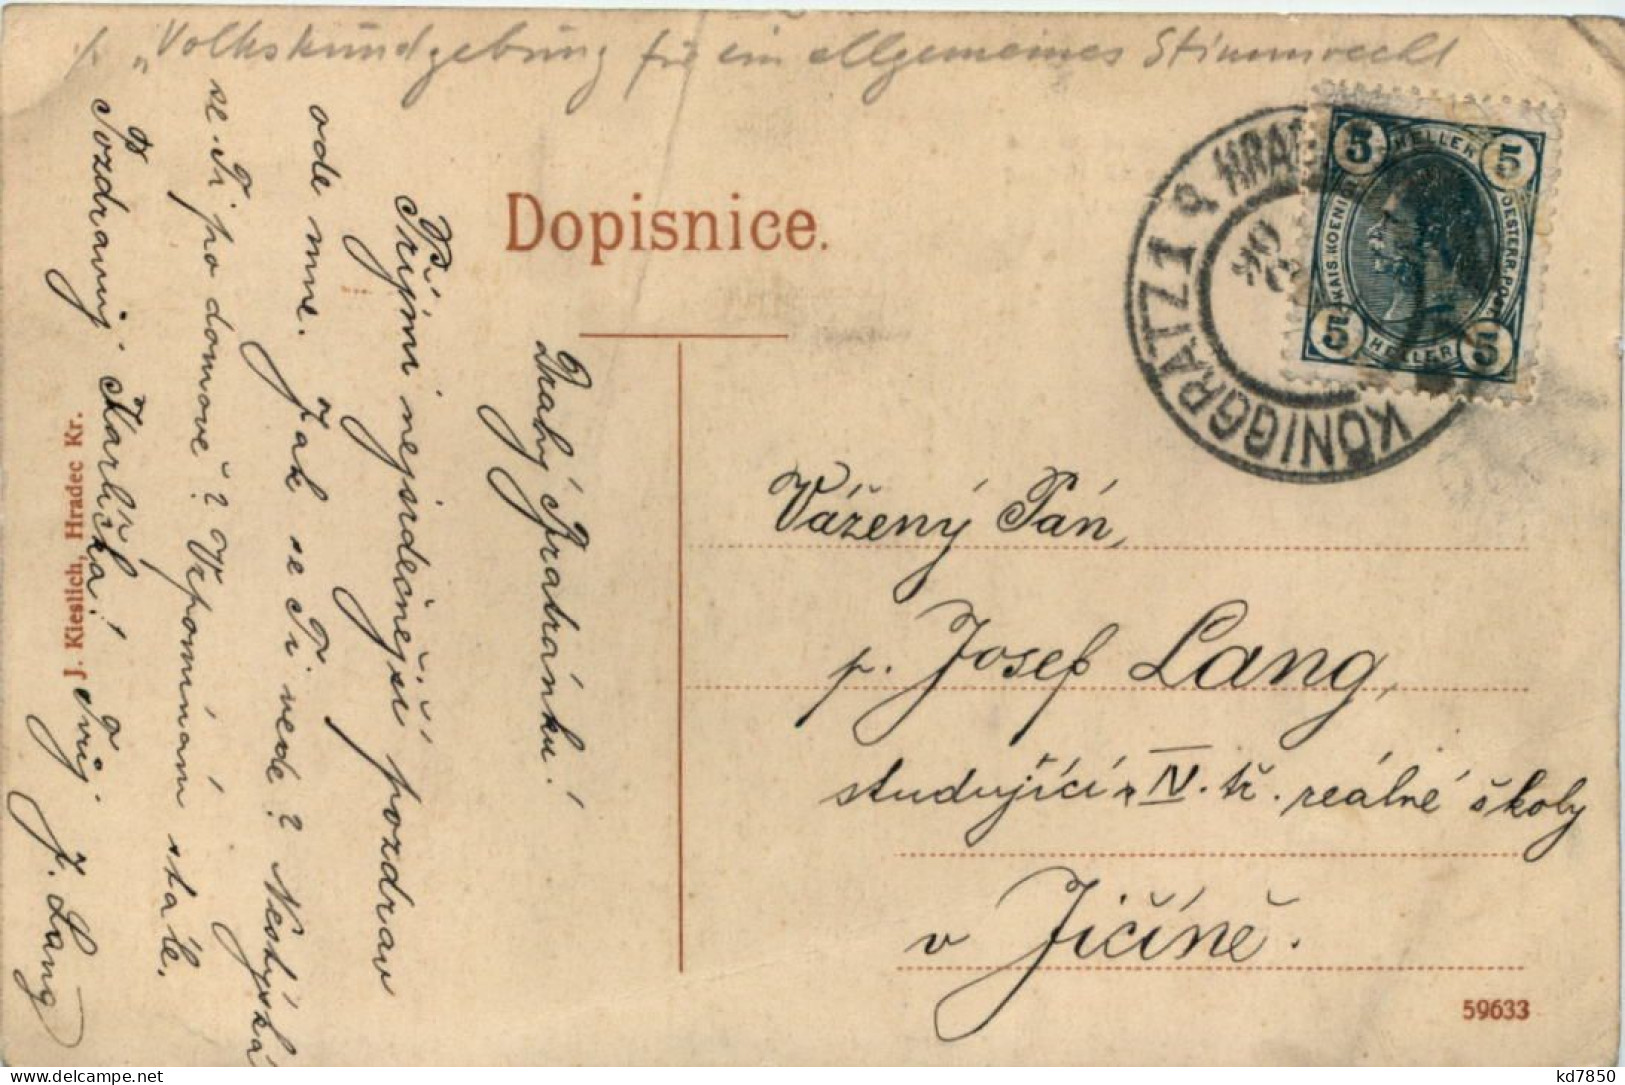 p. „Volkskundgebung für ein allgemeines Stimmrecht
Dopisnice.
5 HELLER 5
KAIS. KOENIGL. OESTERR. POST
5 HELLER 5
KÖNIGGRATZ 1 HRAD
06
Drahý Bratránku!
Přijmi nejsrdečnější pozdrav
ode mne. Jak se Ti vede? Nestýská
se Ti po domově? Vzpomínám stále.
Pozdravuj Karlíčka! Tvůj
J. Lang
J. Kieslich, Hradec Kr.
Vážený Pán,
p. Josef Lang,
studující IV. tř. reálné školy
v Jičíně.
59633
kd7850